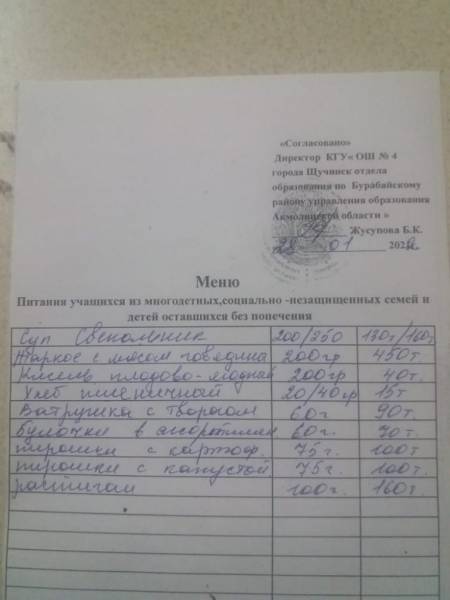 «Согласовано»
Директор КГУ« ОШ № 4
города Щучинск отдела
образования по Бурабайскому
району управления образования
Акмолинской области »
Жусупова Б.К.
28 01 2022
Меню
Питания учащихся из многодетных,социально -незащищенных семей и
детей оставшихся без попечения
Суп Свекольник 200/250 130т/160т
Жаркое с мясом говядина 200гр 450т
Кисель плодово-ягодный 200гр 40т.
Хлеб пшеничный 20/40гр 15т
Ватрушка с творогом 60г 90т.
Булочки в ассортимен 60г. 70т.
пирожки с картоф. 75г. 100т
пирожки с капустой 75г. 100т.
100г. 160т